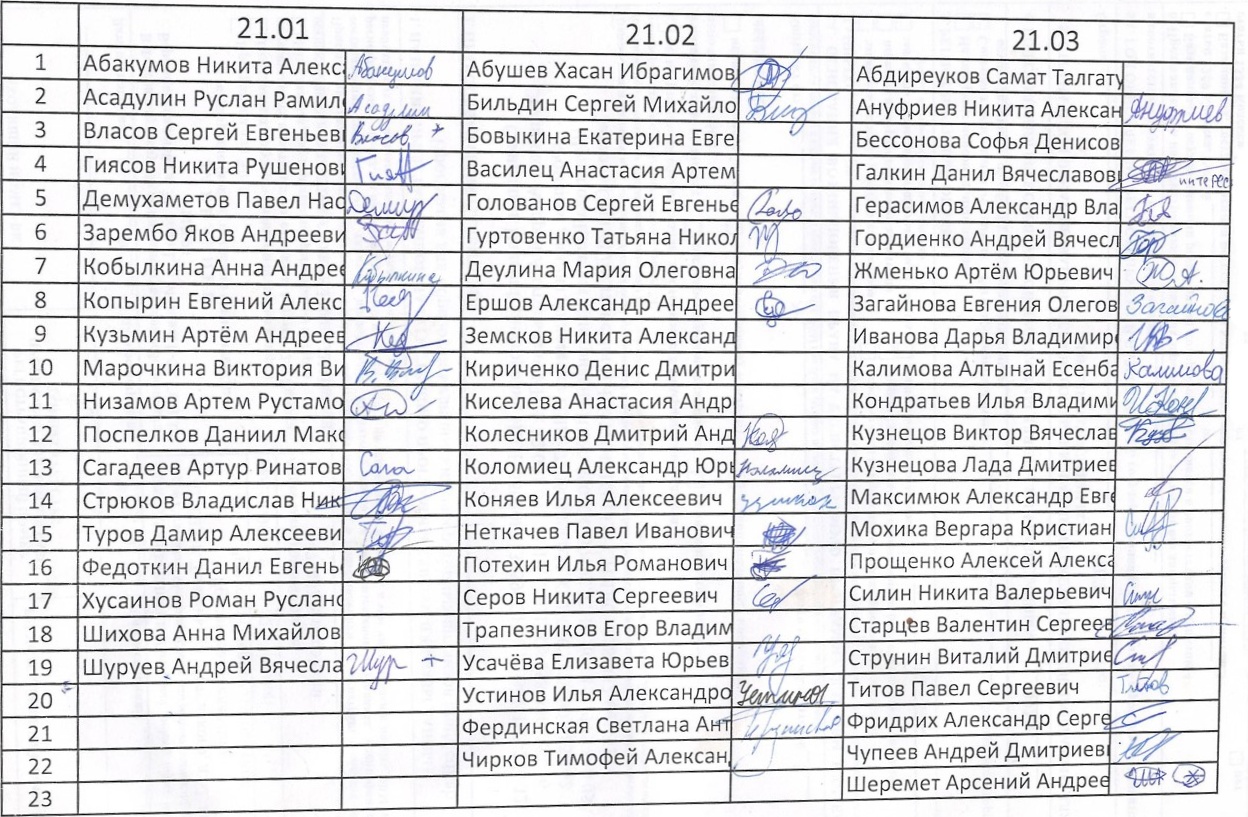 21.01 21.02 21.03
1 Абакумов Никита Алекс Абакумов Абушев Хасан Ибрагимов Абдиреуков Самат Талгату
2 Асадулин Руслан Рамил Асадулин Бильдин Сергей Михайло Ануфриев Никита Алексан Ануфриев
3 Власов Сергей Евгеньев Власов + Бовыкина Екатерина Евге Бессонова Софья Денисов
4 Гиясов Никита Рушенов Василец Анастасия Артем Галкин Данил Вячеславов интерес
5 Демухаметов Павел Нас Голованов Сергей Евгенье Герасимов Александр Вла
6 Зарембо Яков Андрееви Гуртовенко Татьяна Никол Гордиенко Андрей Вячесл Гор
7 Кобылкина Анна Андрее Кобылкина Деулина Мария Олеговна Жменько Артём Юрьевич
8 Копырин Евгений Алекс Ершов Александр Андрее Загайнова Евгения Олегов Загайнова
9 Кузьмин Артём Андреев Земсков Никита Александ Иванова Дарья Владимир
10 Марочкина Виктория Ви Кириченко Денис Дмитри Калимова Алтынай Есенба Калимова
11 Низамов Артем Рустамо Киселева Анастасия Андр Кондратьев Илья Владими
12 Поспелков Даниил Макс Колесников Дмитрий Анд Кузнецов Виктор Вячеслав
13 Сагадеев Артур Ринатов Сага Коломиец Александр Юрь Коломиец Кузнецова Лада Дмитриев
14 Стрюков Владислав Ник Коняев Илья Алексеевич Максимюк Александр Евге
15 Туров Дамир Алексееви Неткачев Павел Иванович Мохика Вергара Кристиан
16 Федоткин Данил Евгень Потехин Илья Романович Прощенко Алексей Алекса
17 Хусаинов Роман Руслано Серов Никита Сергеевич Силин Никита Валерьевич
18 Шихова Анна Михайлов Трапезников Егор Владим Старцев Валентин Сергеев
19 Шуруев Андрей Вячесла Шур + Усачёва Елизавета Юрьев Струнин Виталий Дмитрие
20 Устинов Илья Александро Устинов Титов Павел Сергеевич Титов
21 Фердинская Светлана Ант Фридрих Александр Серге
22 Чирков Тимофей Алексан Чупеев Андрей Дмитриеви
23 Шеремет Арсений Андрее